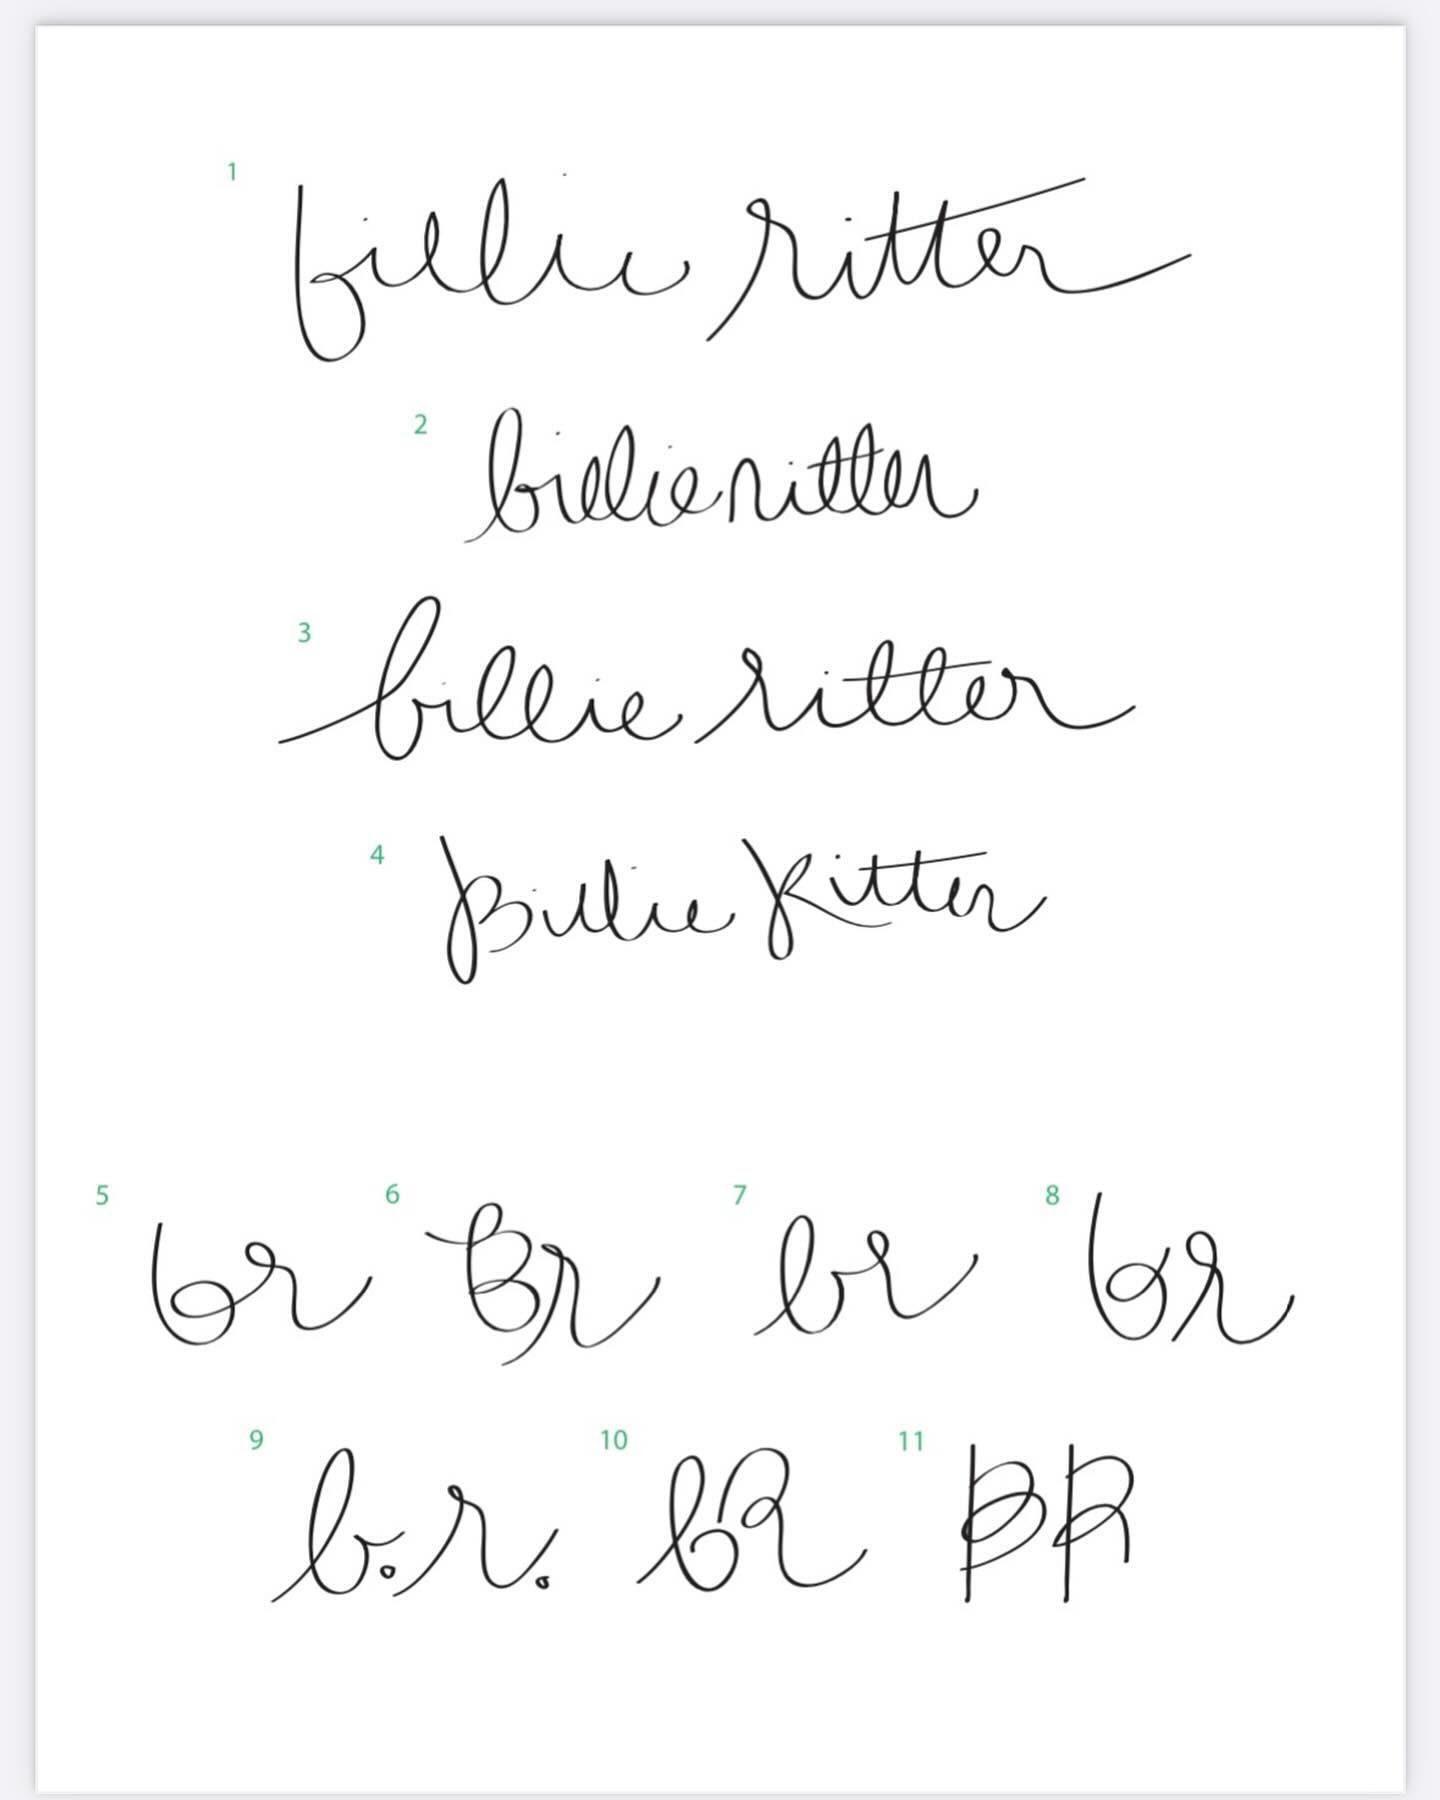 1 billie ritter
2 billie ritter
3 billie ritter
4 Billie Ritter
5 br 6 Br 7 br 8 br
9 b.r. 10 bR 11 BR